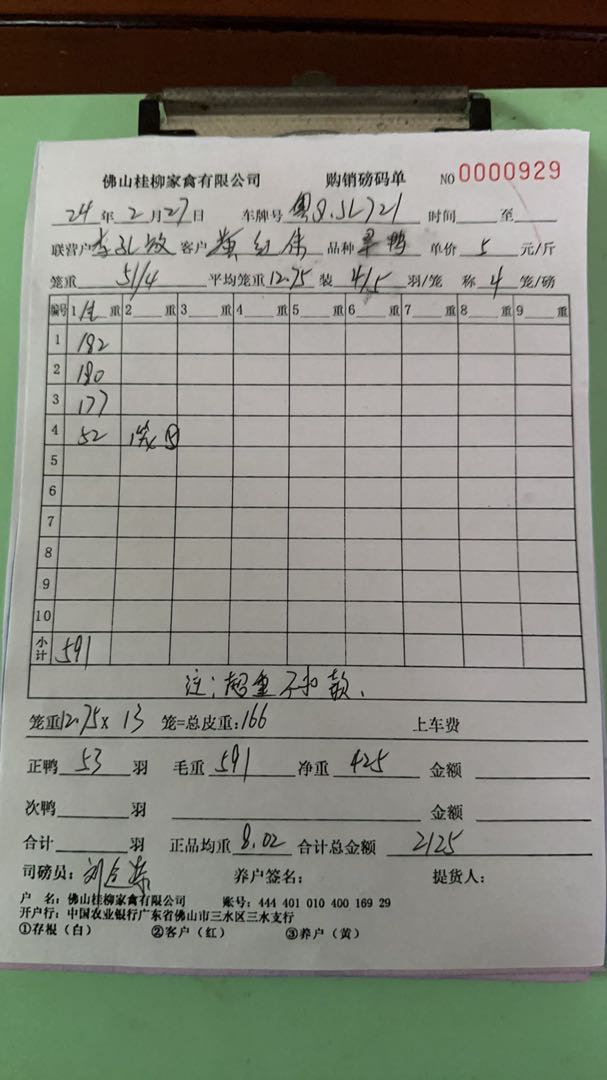 佛山桂柳家禽有限公司 购销磅码单 NO 0000929
24年2月27日 车牌号 粤Q.JL721 时间 至
联营户 李孔放 客户 黄红伟 品种 旱鸭 单价 5 元/斤
笼重 51/4 平均笼重 12.75 装 4/5 羽/笼 称 4 笼/磅
编号 1 重 2 重 3 重 4 重 5 重 6 重 7 重 8 重 9 重
1 182
2 180
3 177
4 52
5
6
7
8
9
10
小计 591
注:超重不扣款.
笼重12.75x13 笼=总皮重:166 上车费
正鸭 53 羽 毛重 591 净重 425 金额
次鸭 羽 金额
合计 羽 正品均重 8.02 合计总金额 2125
司磅员: 养户签名: 提货人:
户 名:佛山桂柳家禽有限公司 账号:444 401 010 400 169 29
开户行:中国农业银行广东省佛山市三水区三水支行
①存根(白) ②客户(红) ③养户(黄)